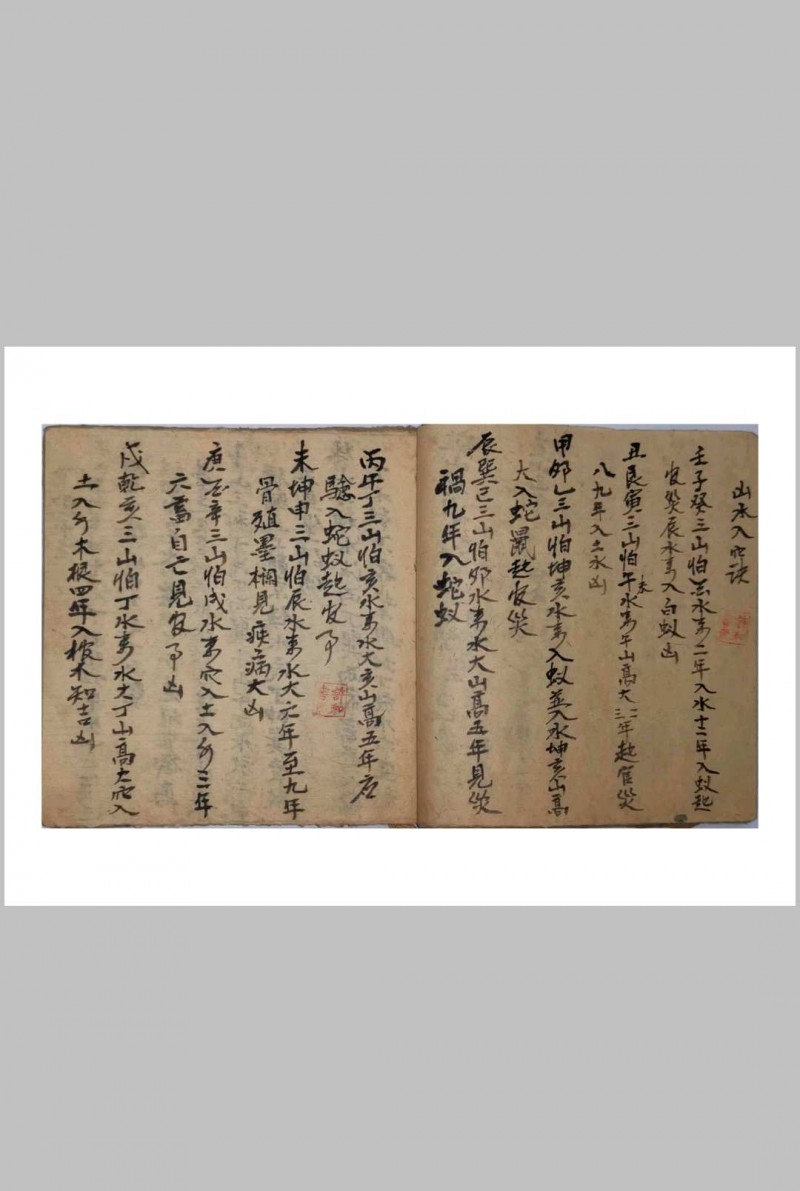 山水入穴訣
壬子癸三山怕水來二年入水十二年入蚁起
官災辰水來入白蚁凶
丑艮寅三山怕午未水來午山高大三二年起官災
八九年入土水凶
甲卯乙三山怕坤亥水來入蚁並入水坤亥山高
大入蛇鼠起官災
辰巽巳三山怕卯水來水大山高五年見災
禍九年入蛇蚁
丙午丁三山怕亥水來水大亥山高五年应
驗入蛇蚁起官事
未坤申三山怕辰水來水大六年至九年
骨殖墨爛見疾病大凶
庚酉辛三山怕戌水來穴入土入分三年
六畜自亡見官事凶
戌乾亥三山怕丁水來水大丁山高大穴入
土入分木根四年入棺木知吉凶